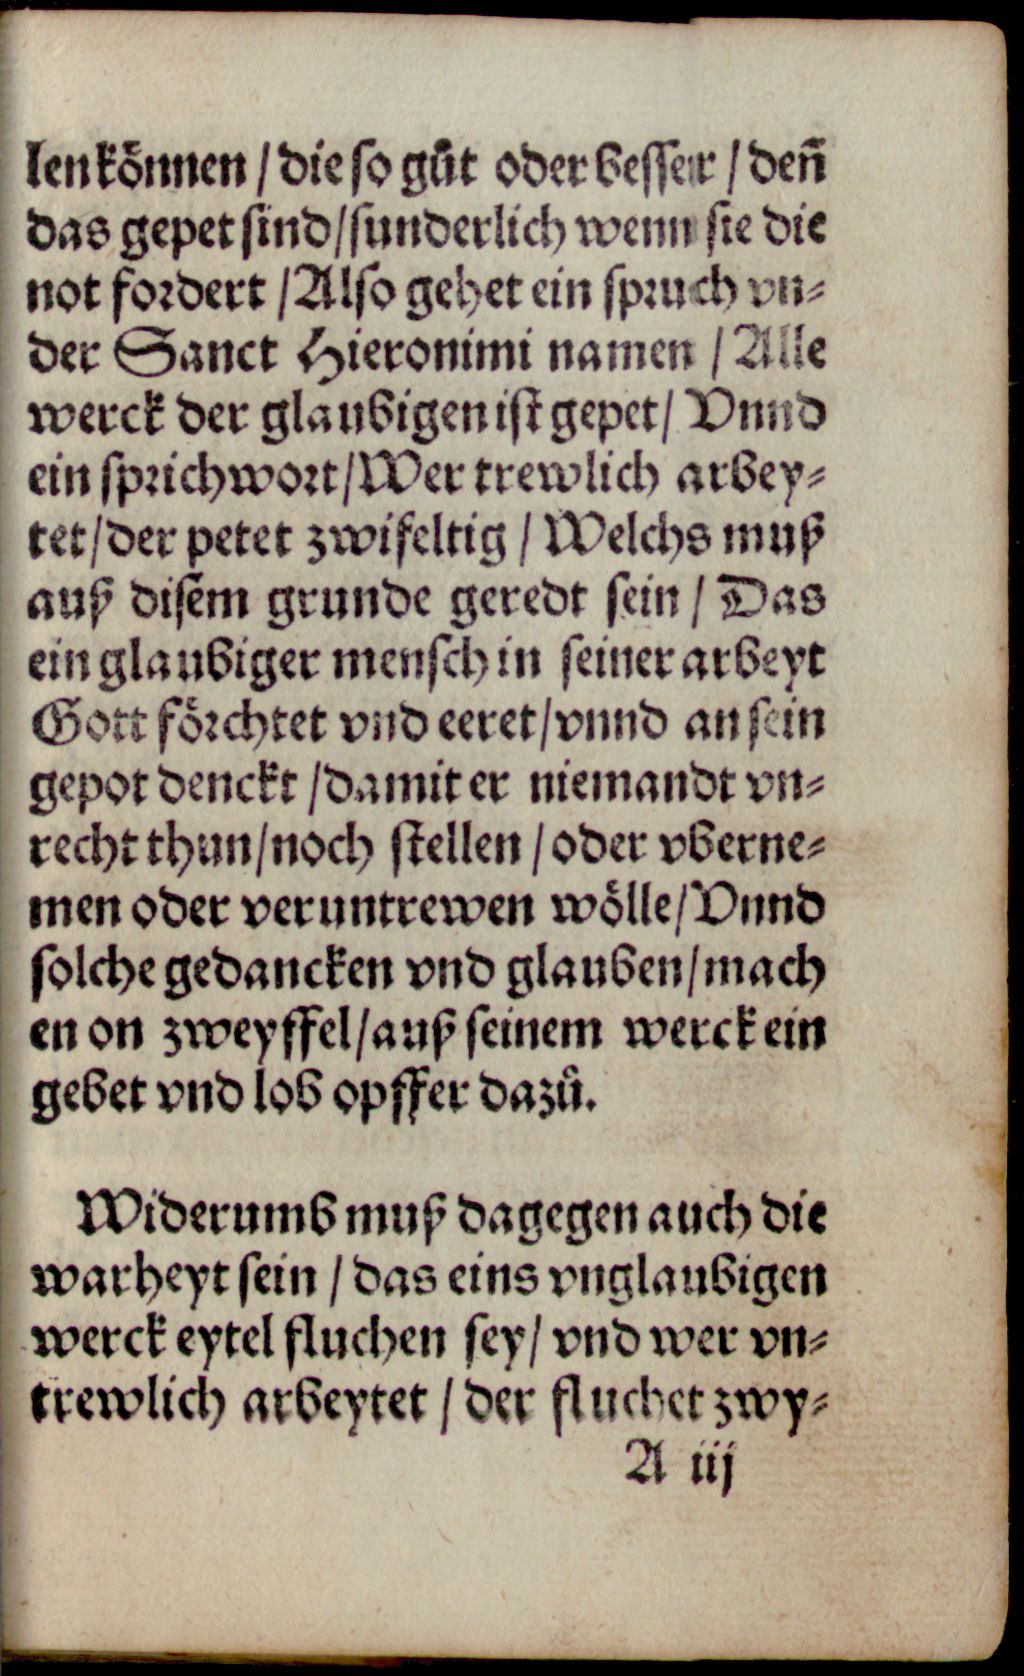 len koͤnnen / die so guͦt oder besser / deñ
das gepet sind / sunderlich wenn sie die
not fordert / Also gehet ein spruch vn⸗
der Sanct Hieronimi namen / Alle
werck der glaubigen ist gepet / Vnnd
ein sprichwort / Wer trewlich arbey⸗
tet / der petet zwifeltig / Welchs muß
auß disem grunde geredt sein / Das
ein glaubiger mensch in seiner arbeyt
Gott foͤrchtet vnd eeret / vnnd an sein
gepot denckt / damit er niemandt vn⸗
recht thun / noch stellen / oder vberne⸗
men oder veruntrewen woͤlle / Vnnd
solche gedancken vnd glauben / mach
en on zweyffel / auß seinem werck ein
gebet vnd lob opffer dazuͦ.
Widerumb muß dagegen auch die
warheyt sein / das eins vnglaubigen
werck eytel fluchen sey / vnd wer vn⸗
trewlich arbeytet / der fluchet zwy⸗
A iij